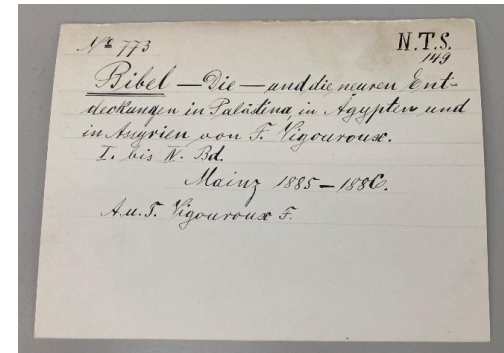 № 773
N.T.S.
149
Bibel — Die — und die neuren Ent-
deckungen in Palästina, in Ägypten und
in Assyrien von F. Vigouroux.
I. bis IV. Bd.
Mainz 1885 – 1886.
A.u.T. Vigouroux F.